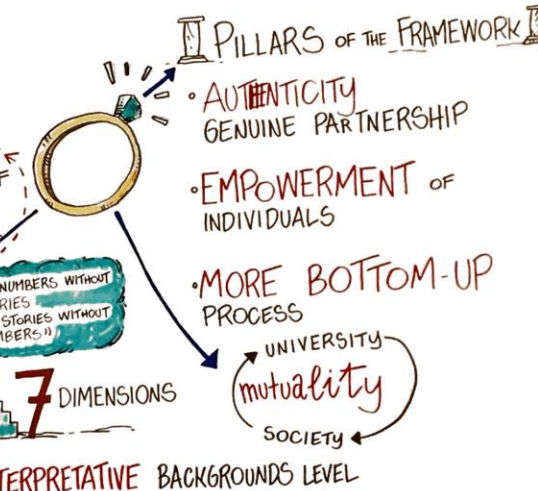 PILLARS OF THE FRAMEWORK
• AUTHENTICITY
GENUINE PARTNERSHIP
• EMPOWERMENT OF
INDIVIDUALS
• MORE BOTTOM-UP
PROCESS
UNIVERSITY
mutuality
SOCIETY
F
NUMBERS WITHOUT
RIES
STORIES WITHOUT
MBERS"
7 DIMENSIONS
TERPRETATIVE BACKGROUNDS LEVEL